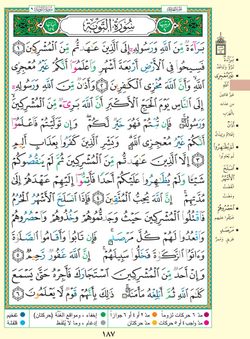 سُورَةُ التَّوْبَةِ
بَرَآءَةٌ مِّنَ ٱللَّهِ وَرَسُولِهِۦٓ إِلَى ٱلَّذِينَ عَٰهَدتُّم مِّنَ ٱلْمُشْرِكِينَ ١
فَسِيحُوا۟ فِى ٱلْأَرْضِ أَرْبَعَةَ أَشْهُرٍ وَٱعْلَمُوٓا۟ أَنَّكُمْ غَيْرُ مُعْجِزِى
ٱللَّهِ وَأَنَّ ٱللَّهَ مُخْزِى ٱلْكَٰفِرِينَ ٢ وَأَذَٰنٌ مِّنَ ٱللَّهِ وَرَسُولِهِۦٓ
إِلَى ٱلنَّاسِ يَوْمَ ٱلْحَجِّ ٱلْأَكْبَرِ أَنَّ ٱللَّهَ بَرِىٓءٌ مِّنَ ٱلْمُشْرِكِينَ
وَرَسُولُهُۥ فَإِن تُبْتُمْ فَهُوَ خَيْرٌ لَّكُمْ وَإِن تَوَلَّيْتُمْ فَٱعْلَمُوٓا۟
أَنَّكُمْ غَيْرُ مُعْجِزِى ٱللَّهِ وَبَشِّرِ ٱلَّذِينَ كَفَرُوا۟ بِعَذَابٍ أَلِيمٍ
٣ إِلَّا ٱلَّذِينَ عَٰهَدتُّم مِّنَ ٱلْمُشْرِكِينَ ثُمَّ لَمْ يَنقُصُوكُمْ
شَيْـًٔا وَلَمْ يُظَٰهِرُوا۟ عَلَيْكُمْ أَحَدًا فَأَتِمُّوٓا۟ إِلَيْهِمْ عَهْدَهُمْ إِلَىٰ
مُدَّتِهِمْ إِنَّ ٱللَّهَ يُحِبُّ ٱلْمُتَّقِينَ ٤ فَإِذَا ٱنسَلَخَ ٱلْأَشْهُرُ ٱلْحُرُمُ
فَٱقْتُلُوا۟ ٱلْمُشْرِكِينَ حَيْثُ وَجَدتُّمُوهُمْ وَخُذُوهُمْ وَٱحْصُرُوهُمْ
وَٱقْعُدُوا۟ لَهُمْ كُلَّ مَرْصَدٍ فَإِن تَابُوا۟ وَأَقَامُوا۟ ٱلصَّلَوٰةَ
وَءَاتَوُا۟ ٱلزَّكَوٰةَ فَخَلُّوا۟ سَبِيلَهُمْ إِنَّ ٱللَّهَ غَفُورٌ رَّحِيمٌ
٥ وَإِنْ أَحَدٌ مِّنَ ٱلْمُشْرِكِينَ ٱسْتَجَارَكَ فَأَجِرْهُ حَتَّىٰ يَسْمَعَ
كَلَٰمَ ٱللَّهِ ثُمَّ أَبْلِغْهُ مَأْمَنَهُۥ ذَٰلِكَ بِأَنَّهُمْ قَوْمٌ لَّا يَعْلَمُونَ ٦
مدّ ٦ حركات لزوماً مدّ ٢ أو ٤ أو ٦ جوازاً إخفاء، ومواقع الغُنَّة (حركتان) تفخيم
مدّ واجب ٤ أو ٥ حركات مدّ حركتان إدغام، وما لا يُلفَظ قلقلة
١٨٧